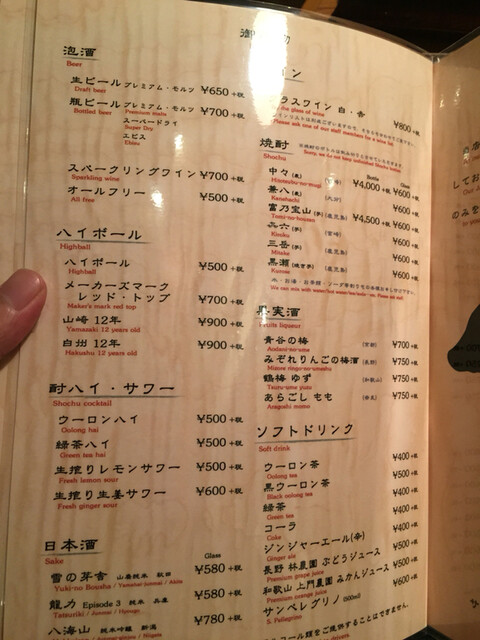 泡酒
Beer
生ビール プレミアム・モルツ ¥650 +税
Draft beer Premium malts
瓶ビール プレミアム・モルツ ¥700 +税
Bottled beer Premium malts
スーパードライ
Super Dry
エビス
Ebisu
スパークリングワイン ¥700 +税
Sparkling wine
オールフリー ¥500 +税
All free
ハイボール
Highball
ハイボール ¥500 +税
Highball
メーカーズマーク
レッド・トップ ¥700 +税
Maker's mark red top
山崎 12年 ¥900 +税
Yamazaki 12 years old
白州 12年 ¥900 +税
Hakushu 12 years old
酎ハイ・サワー
Shochu cocktail
ウーロンハイ ¥500 +税
Oolong hai
緑茶ハイ ¥500 +税
Green tea hai
生搾りレモンサワー ¥500 +税
Fresh lemon sour
生搾り生姜サワー ¥600 +税
Fresh ginger sour
日本酒
Sake
Glass
雪の芽舎 山廃純米 秋田 ¥580 +税
Yuki-no Bousha / Yamahai-junmai / Akita
龍力 Episode 3 純米 兵庫 ¥580 +税
Tatsuriki / Junmai / Hyougo
八海山 純米吟醸 新潟 ¥780 +税
御
イン
ラスワイン 白・赤 ¥800 +税
Please ask one of our staff members for a wine list
焼酎
Shochu
Bottle Glass
中々 (麦) ¥4,000 +税 ¥600 +税
兼八 (麦) (大分) ¥600 +税
Kanehachi
富乃宝山 (芋) (鹿児島) ¥4,500 +税 ¥600 +税
Tomi-no-houzan
㐂六 (芋) (宮崎) ¥600 +税
Kiroku
三岳 (芋) (鹿児島) ¥600 +税
Mitake
黒瀬 (焼き芋) (鹿児島) ¥600 +税
Kurose
果実酒
Fruits liqueur
青谷の梅 (京都) ¥700 +税
Aodani-no-ume
みぞれりんごの梅酒 (長野) ¥750 +税
Mizore ringo-no-umeshu
鶴梅 ゆず (和歌山) ¥750 +税
Tsuru-ume yuzu
あらごし もも (奈良) ¥750 +税
Aragoshi momo
ソフトドリンク
Soft drink
ウーロン茶 ¥400 +税
Oolong tea
黒ウーロン茶 ¥500 +税
Black oolong tea
緑茶 ¥400 +税
Green tea
コーラ ¥400 +税
Coke
ジンジャーエール(辛) ¥400 +税
Ginger ale
長野 林農園 ぶどうジュース ¥500 +税
Premium grape juice
和歌山 上門農園 みかんジュース ¥500 +税
Premium orange juice
サンペレグリノ (500ml) ¥600 +税
S. Pellegrino
コール類をご提供することはできません。